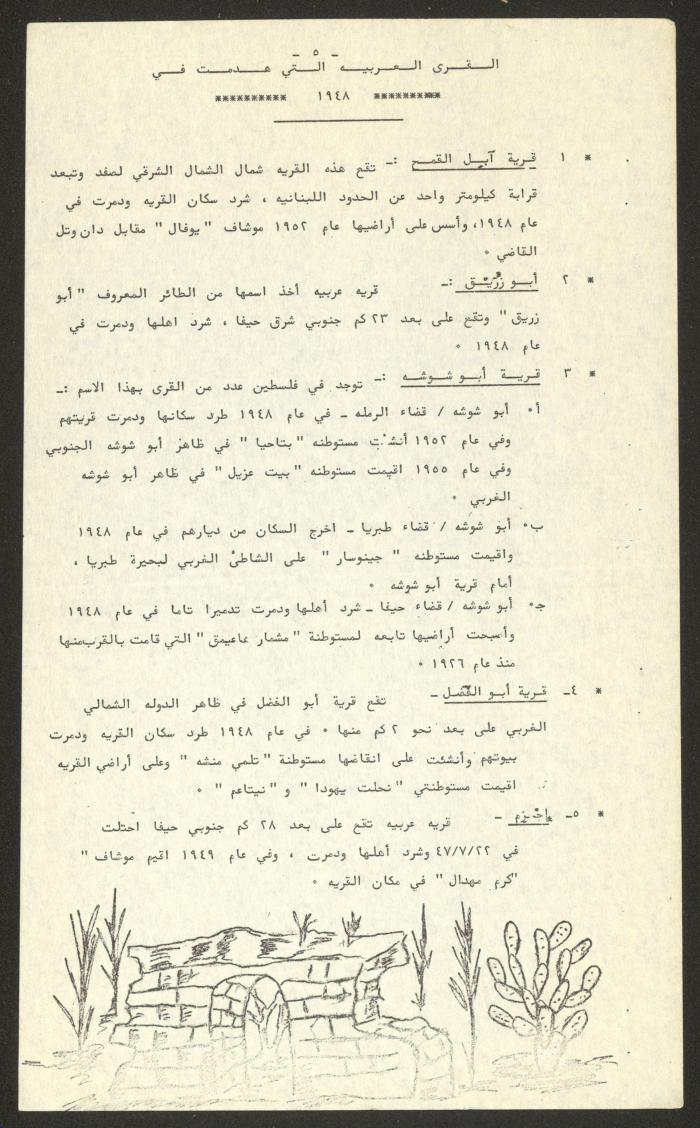 - ٥ -
القرى العربيه التي هدمت في
********* ١٩٤٨ **********
* ١ قرية آبل القمح :- تقع هذه القريه شمال الشمال الشرقي لصفد وتبعد
قرابة كيلومتر واحد عن الحدود اللبنانيه ، شرد سكان القريه ودمرت في
عام ١٩٤٨، وأسس على أراضيها عام ١٩٥٢ موشاف " يوفال " مقابل دان وتل
القاضي ٠
* ٢ أبو زُريْق :- قريه عربيه أخذ اسمها من الطائر المعروف " أبو
زريق " وتقع على بعد ٢٣ كم جنوبي شرق حيفا ، شرد اهلها ودمرت في
عام ١٩٤٨ ٠
* ٣ قرية أبو شوشه :- توجد في فلسطين عدد من القرى بهذا الاسم :-
أ٠ أبو شوشه / قضاء الرمله - في عام ١٩٤٨ طرد سكانها ودمرت قريتهم
وفي عام ١٩٥٢ أنشئت مستوطنه " بتاحيا " في ظاهر أبو شوشه الجنوبي
وفي عام ١٩٥٥ اقيمت مستوطنه " بيت عزيل " في ظاهر أبو شوشه
الغربي ٠
ب٠ أبو شوشه / قضاء طبريا - اخرج السكان من ديارهم في عام ١٩٤٨
واقيمت مستوطنه " جينوسار " على الشاطئ الغربي لبحيرة طبريا ،
أمام قرية أبو شوشه ٠
ج٠ أبو شوشه / قضاء حيفا - شرد أهلها ودمرت تدميرا تاما في عام ١٩٤٨
وأصبحت أراضيها تابعه لمستوطنة " مشمار هاعيمق " التي قامت بالقرب منها
منذ عام ١٩٢٦ ٠
* ٤- قرية أبو الفضل - تقع قرية أبو الفضل في ظاهر الدوله الشمالي
الغربي على بعد نحو ٢ كم منها ٠ في عام ١٩٤٨ طرد سكان القريه ودمرت
بيوتهم وأنشئت على انقاضها مستوطنة " تلمي منشه " وعلى أراضي القريه
اقيمت مستوطنتي " نحلت يهودا " و " نيتاعم " ٠
* ٥- إجْزِم - قريه عربيه تقع على بعد ٢٨ كم جنوبي حيفا احتلت
في ٤٧/٧/٢٢ وشرد أهلها ودمرت ، وفي عام ١٩٤٩ اقيم موشاف "
"كرم مهدال " في مكان القريه ٠